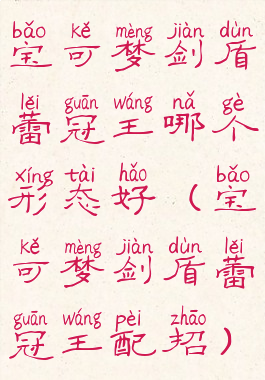 bǎo kě mèng jiàn dùn
宝可梦剑盾
lěi guān wáng nǎ gè
蕾冠王哪个
xíng tài hǎo bǎo
形态好（宝
kě mèng jiàn dùn lěi
可梦剑盾蕾
guān wáng pèi zhāo
冠王配招）